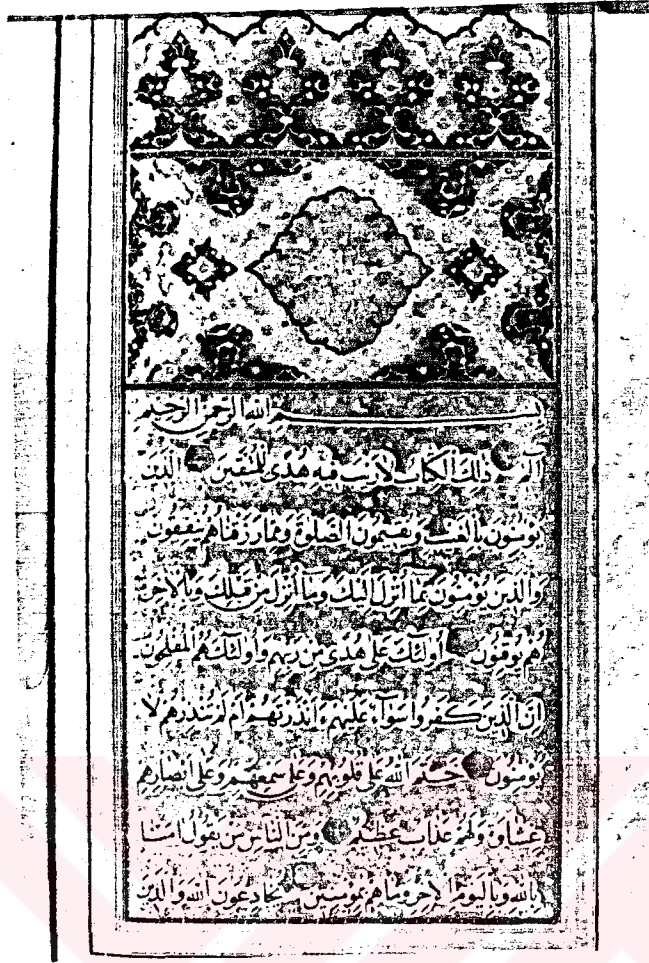 بسم الله الرحمن الرحيم
الم ذلك الكتاب لا ريب فيه هدى للمتقين الذين
يؤمنون بالغيب ويقيمون الصلوة ومما رزقناهم ينفقون
والذين يؤمنون بما انزل اليك وما انزل من قبلك وبالاخرة
هم يوقنون اولئك على هدى من ربهم واولئك هم المفلحون
ان الذين كفروا سواء عليهم ءانذرتهم ام لم تنذرهم لا
يؤمنون ختم الله على قلوبهم وعلى سمعهم وعلى ابصارهم
غشاوة ولهم عذاب عظيم ومن الناس من يقول امنا
بالله وباليوم الاخر وما هم بمؤمنين يخادعون الله والذين